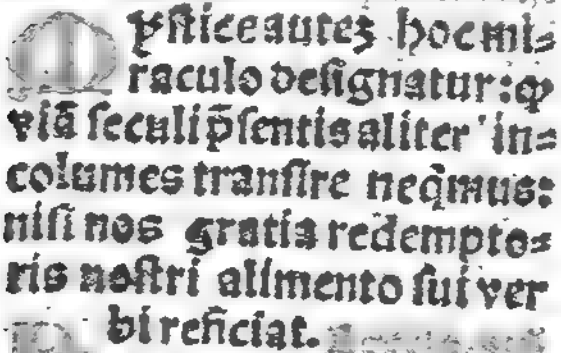 Mystice autez hoc mi=
raculo designatur: ꝙ
viā seculi p̄sentis aliter in=
columes transire neq̄mus:
nisi nos gratia redempto=
ris nostri alimento sui ver
bi reficiat.